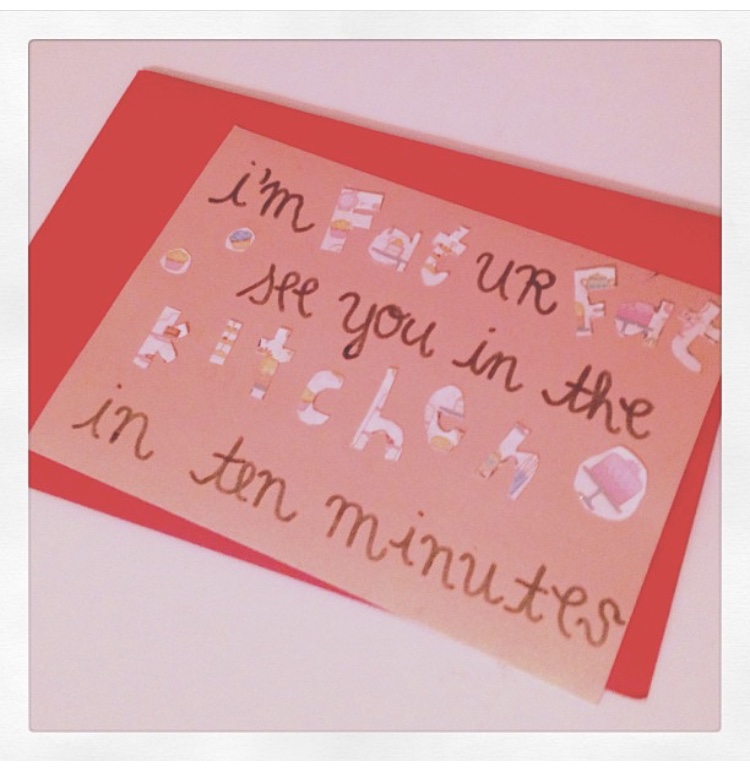 i'm Fat UR Fat
see you in the
Kitchen
in ten minutes